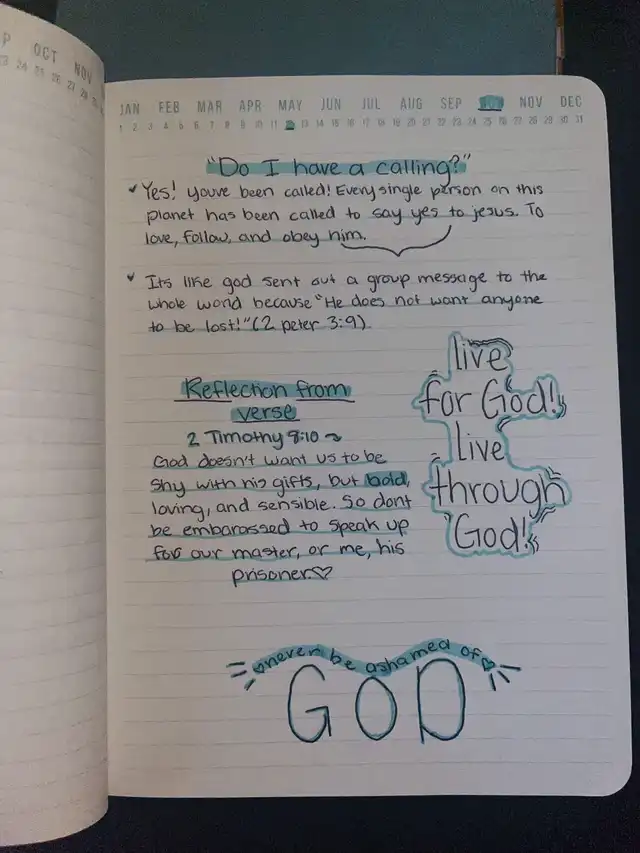 P OCT NOV
23 24 25 26 27 28
JAN FEB MAR APR MAY JUN JUL AUG SEP NOV DEC
1 2 3 4 5 6 7 8 9 10 11 12 13 14 15 16 17 18 19 20 21 22 23 24 25 26 27 28 29 30 31
"Do I have a calling?"
Yes! youve been called! Every single person on this
planet has been called to say yes to jesus. To
love, follow, and obey him.
Its like god sent out a group message to the
whole world because "He does not want anyone
to be lost!" (2 peter 3:9)
Reflection from
verse
2 Timothy 8:10
God doesn't want us to be
shy with his gifts, but bold,
loving, and sensible. So dont
be embarassed to speak up
for our master, or me, his
prisoner.♡
live
for God!
live
through
God!
♡never be ashamed of♡
GOD